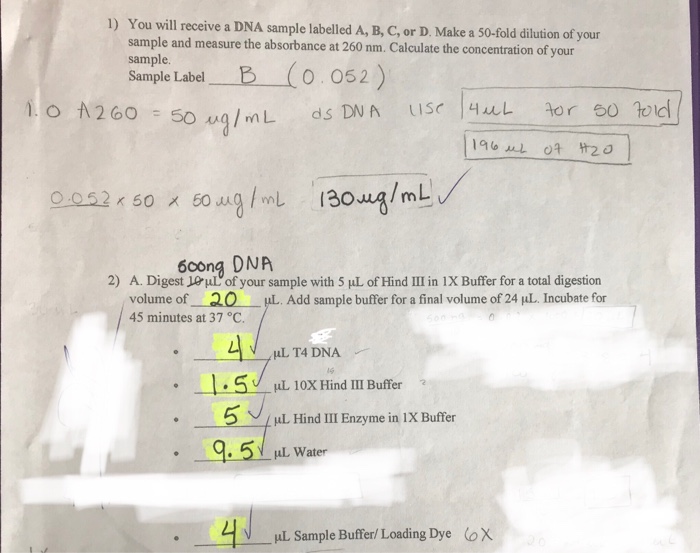 1) You will receive a DNA sample labelled A, B, C, or D. Make a 50-fold dilution of your
sample and measure the absorbance at 260 nm. Calculate the concentration of your
sample.
Sample Label B (0.052)
1.0 A260 = 50 ug/mL ds DNA use 4uL for 50 fold
196 uL of H2O
0.052 x 50 x 50 ug/mL 130ug/mL ✓
500ng DNA
2) A. Digest 10 µL of your sample with 5 µL of Hind III in 1X Buffer for a total digestion
volume of 20 µL. Add sample buffer for a final volume of 24 µL. Incubate for
45 minutes at 37 °C.
• 4 ✓ µL T4 DNA
• 1.5 ✓ µL 10X Hind III Buffer
• 5 ✓ µL Hind III Enzyme in 1X Buffer
• 9.5 ✓ µL Water
• 4 ✓ µL Sample Buffer/ Loading Dye 6X